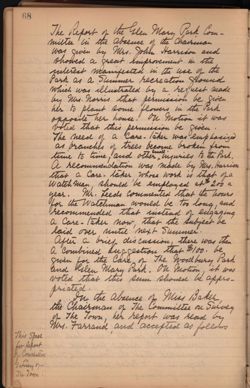 68
The Report of the Glen Mary Park Com-
mittee in the absence of the Chairman
was given by Mrs. John Harrison and
showed a great improvement in the
interest manifested in the use of the
Park as a Summer recreation Ground
which was illustrated by a request made
by Mrs Norris that permission be given
her to plant some flowers in the Park
opposite her house. On Motion it was
voted that this permission be given.
The need of a Care-taker was emphasized
as branches of trees become broken from
time to time, and other injuries to the Park.
A recommendation was made by Mrs. Harrison
that a Care-taker whose work is that of a
Watchman, should be employed at
year. Mr. Leeds commented that the hours
for the Watchman would be too long, and
recommended that instead of engaging
a Care-taker now, that the subject be
laid over until next Summer.
After a brief discussion, there was then
a combined suggestion that $100. be
given for the Care, of The Woodbury Park
and Glen Mary Park. On Motion, it was
voted that this sum should be appro-
priated.
In the absence of Miss Baker,
the Chairman of The Committee on Survey
of The Town, her report was read by
Mrs. Farrand and accepted as follows
This Space
for report
of Committee
Survey on
The Town